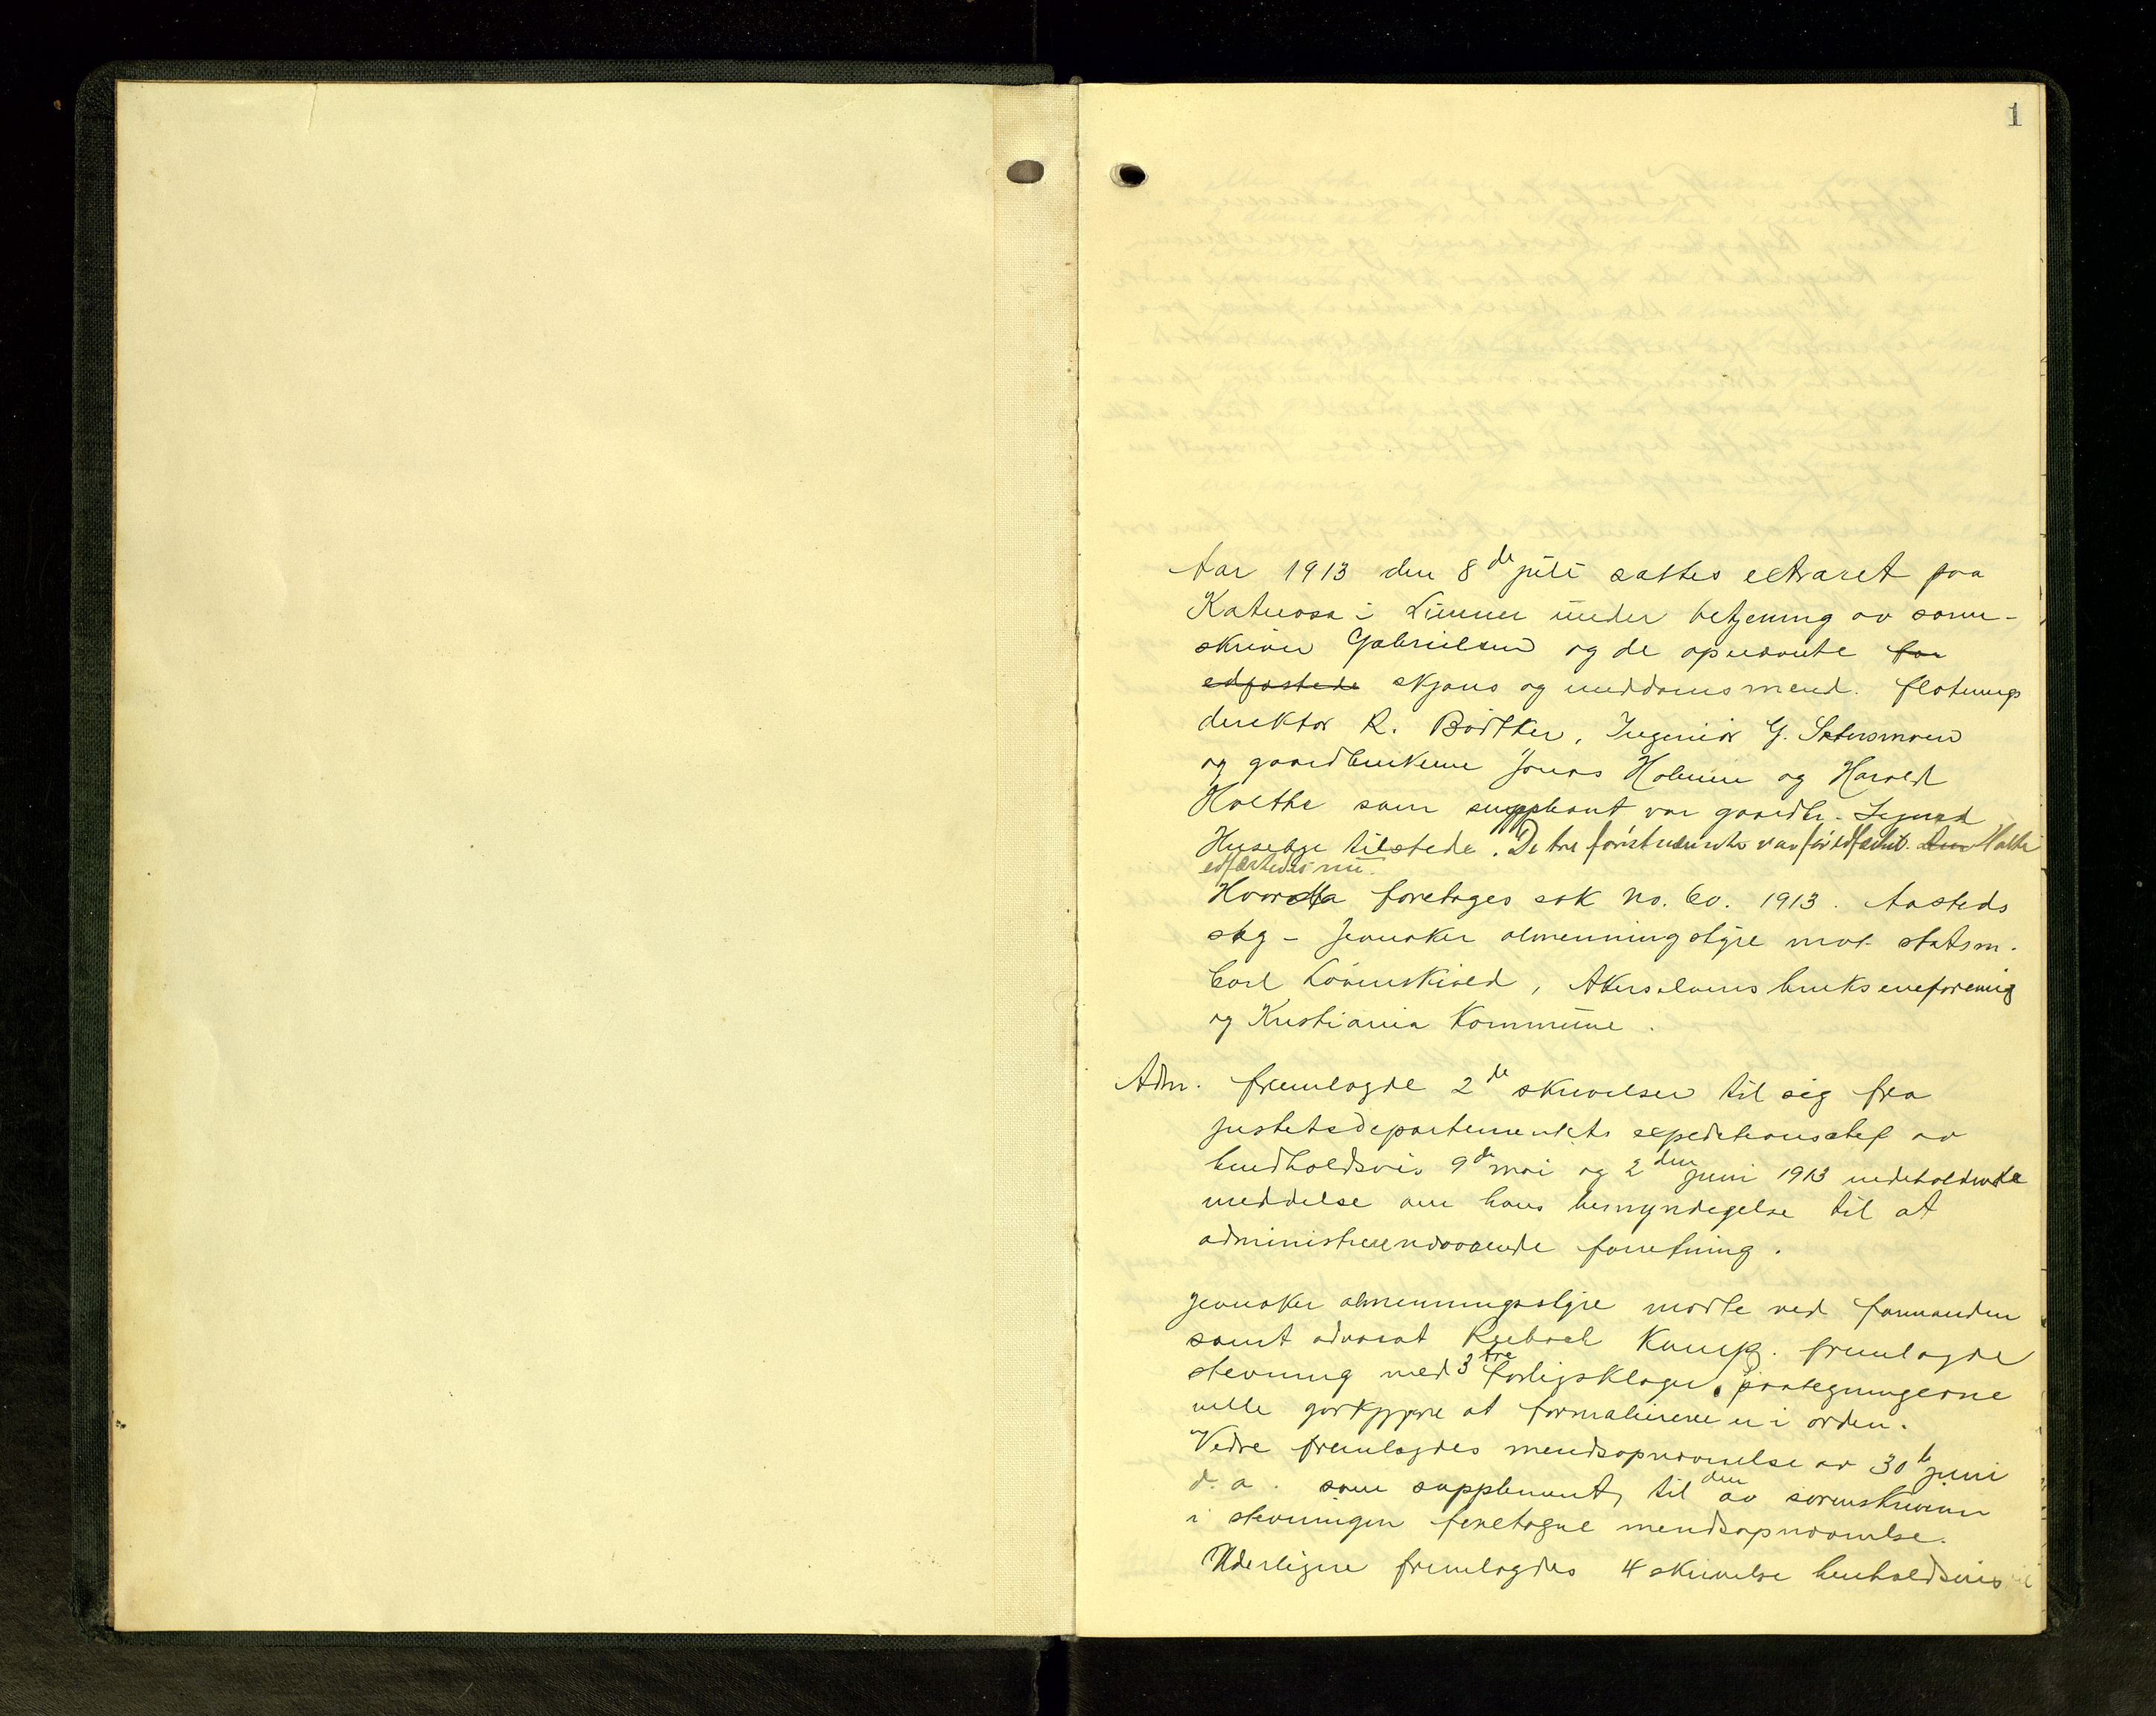 1
Aar 1913 den 8de juli sattes extraret paa
Katnosa i Lunner under betjening av soren-
skriver Gabrielsen og de opnævnte for
edfæstede skjøns og meddomsmænd. fløtnings
direktør R. Bödtker, Ingeniør G. Sætersmoen
og gaardbrukerne Jonas Holmen og Harald
Holthe som suppleant var gaardbr. Sigurd
Huseby tilstede. De tre førstnævnte var før edfæstet. Den Holthe
edfæstedes nu.
Hvorda foretages sak No. 60. 1913. Aasteds
sag – Jevnaker almenningstyre mot statsm.
Carl Løvenskiold, Akerselvens brukseierforening
og Kristiania Kommune.
Adm. fremlagde 2de skrivelser til sig fra
justitsdepartementets expeditionschef av
henholdsvis 9de mai og 2den juni 1913 indeholdende
meddelse om hans bemyndigelse til at
administrere nærværende forretning.
Jevnaker almenningsstyre møtte ved formanden
samt advocat Kamp. fremlagde
stevning med 3 tre forligsklager, paategningerne
ville godtgjøre at formaliteterne er i orden.
Vidre fremlagdes mendsopnævnelse av 30te juni
d. a. som supplement til den av sorenskriveren
i stevningen foretagne mendsopnævnelse.
Yderligere fremlagdes 4 skrivelse henholdsvis til